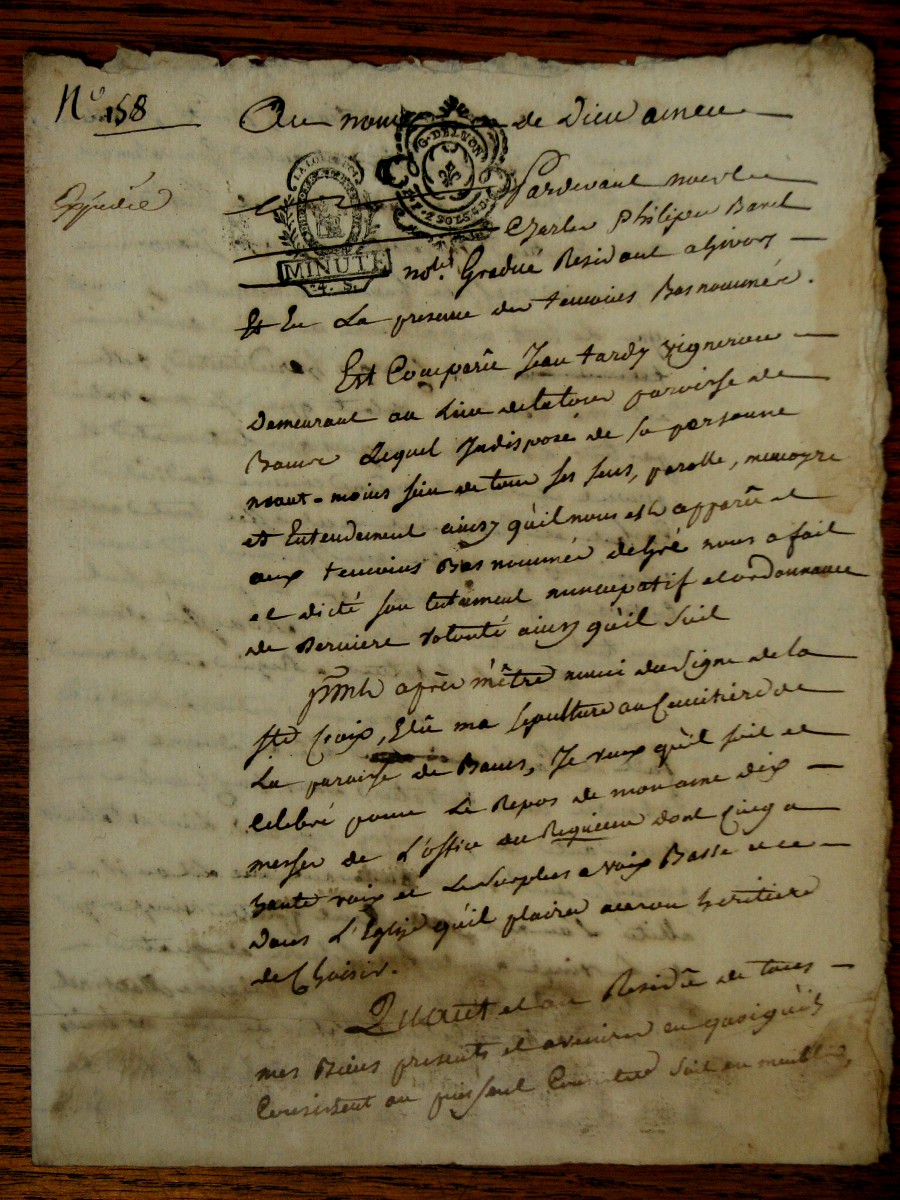 N° 158
Expédié
Au nom de Dieu amen
G. DE LYON
2 SOLS 4 D
LA LOI
MINUTE
4. S.
Pardevant nous
Charles Philipeu Barel
not.re Gradué Residant a Givors
Et En La presence des temoins Bas nommés.
Est Comparû Jean tardy vigneron
Demeurant au Lieu de la tour paroisse de
Lequel Indisposé de sa personne
neant-moins sein de tous ses sens, parolle, memoyre
et Entendement ainsy qu'il nous est apparû et
aux temoins Bas nommés de Gré nous a fait
et dicté son testament nuncupatif et ordonnance
de Derniere volonté ainsy qu'il suit
p.mt après m'être muni du signe de la
ste Croix, Elû ma sepulture au Cimitière de
La paroisse de Bans, Je veux qu'il soit
Celebré pour Le Repos de mon ame dix
messes de L'office du Requiem dont Cinq a
haute voix et Le Surplus a voix Basse et ce
dans L'Eglise qu'il plaira a mon heritiere
de Choisir.
Quant et au Residû de tous
mes Biens presents et avenirs en quoi qu'ils
Consistent ou puissent Consister soit en meubles,